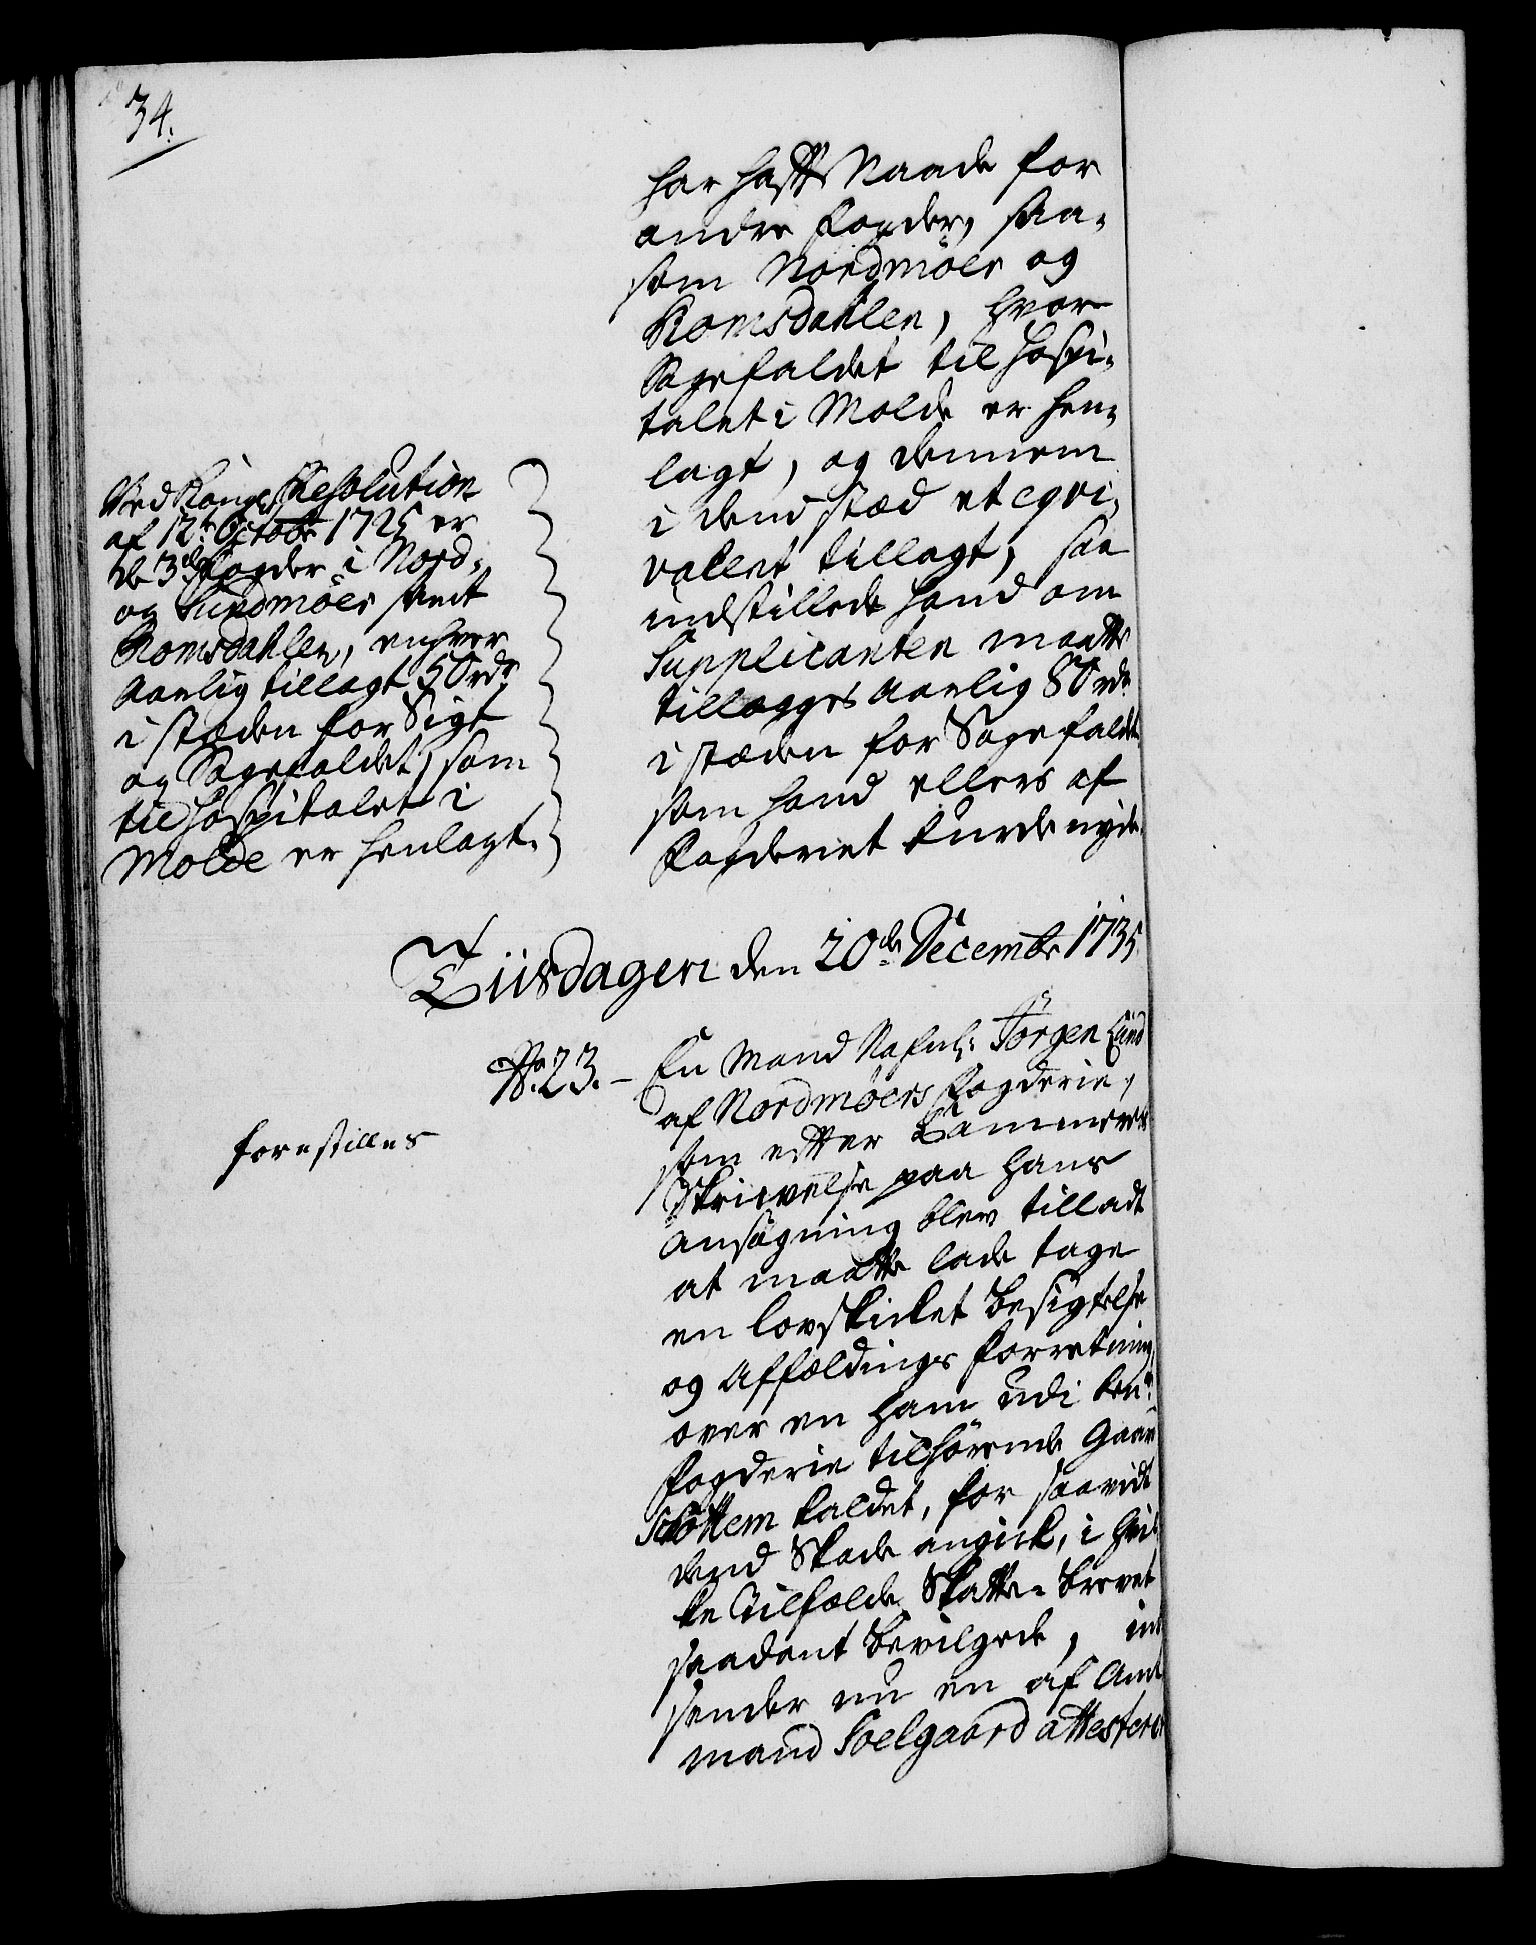 34.
har hafft Naade for
andre Fogder, saa-
som Nordmöer og
Romsdahlen, hvor
Sagefaldet til Hospi-
talet i Molde er hen-
lagt, og dennem
i dend stæd et eqvi-
valent tillagt, saa
indstillede hand om
Supplicanten maatte
tillægges aarlig 80 rdr
i stæden for Sagefaldet
som hand ellers af
Fogderiet kunde nyde
Ved Konge Resolution
af 12te Octobr 1725 er
de 3de Fogder i Nord-
og Sundmöer samt
Romsdahlen, enhver
aarlig tillagt 50 rdr
i stæden for Sigt
og Sagefaldet, som
til Hospitalet i
Molde er henlagt.
Tiisdagen den 20de Decembr 1735
No. 23. – En Mand Nafnl: Jörgen Lund
af Nordmöers Fogderie,
som efter Cammerets
Skrivelse paa hans
Ansögning blev tilladt
at maatte lade tage
en lovskicket Besigtelse
og Affældings Forretning,
over en ham udi bem:te
Fogderie tilhörende Gaard
kaldet, for saavidt
dend Skade angick, i hvil-
ke Tilfælde Skatte-Brevet
saadant bevilgede, ind
sender nu en af Amt
mand Soelgaard attesteret
forestilles